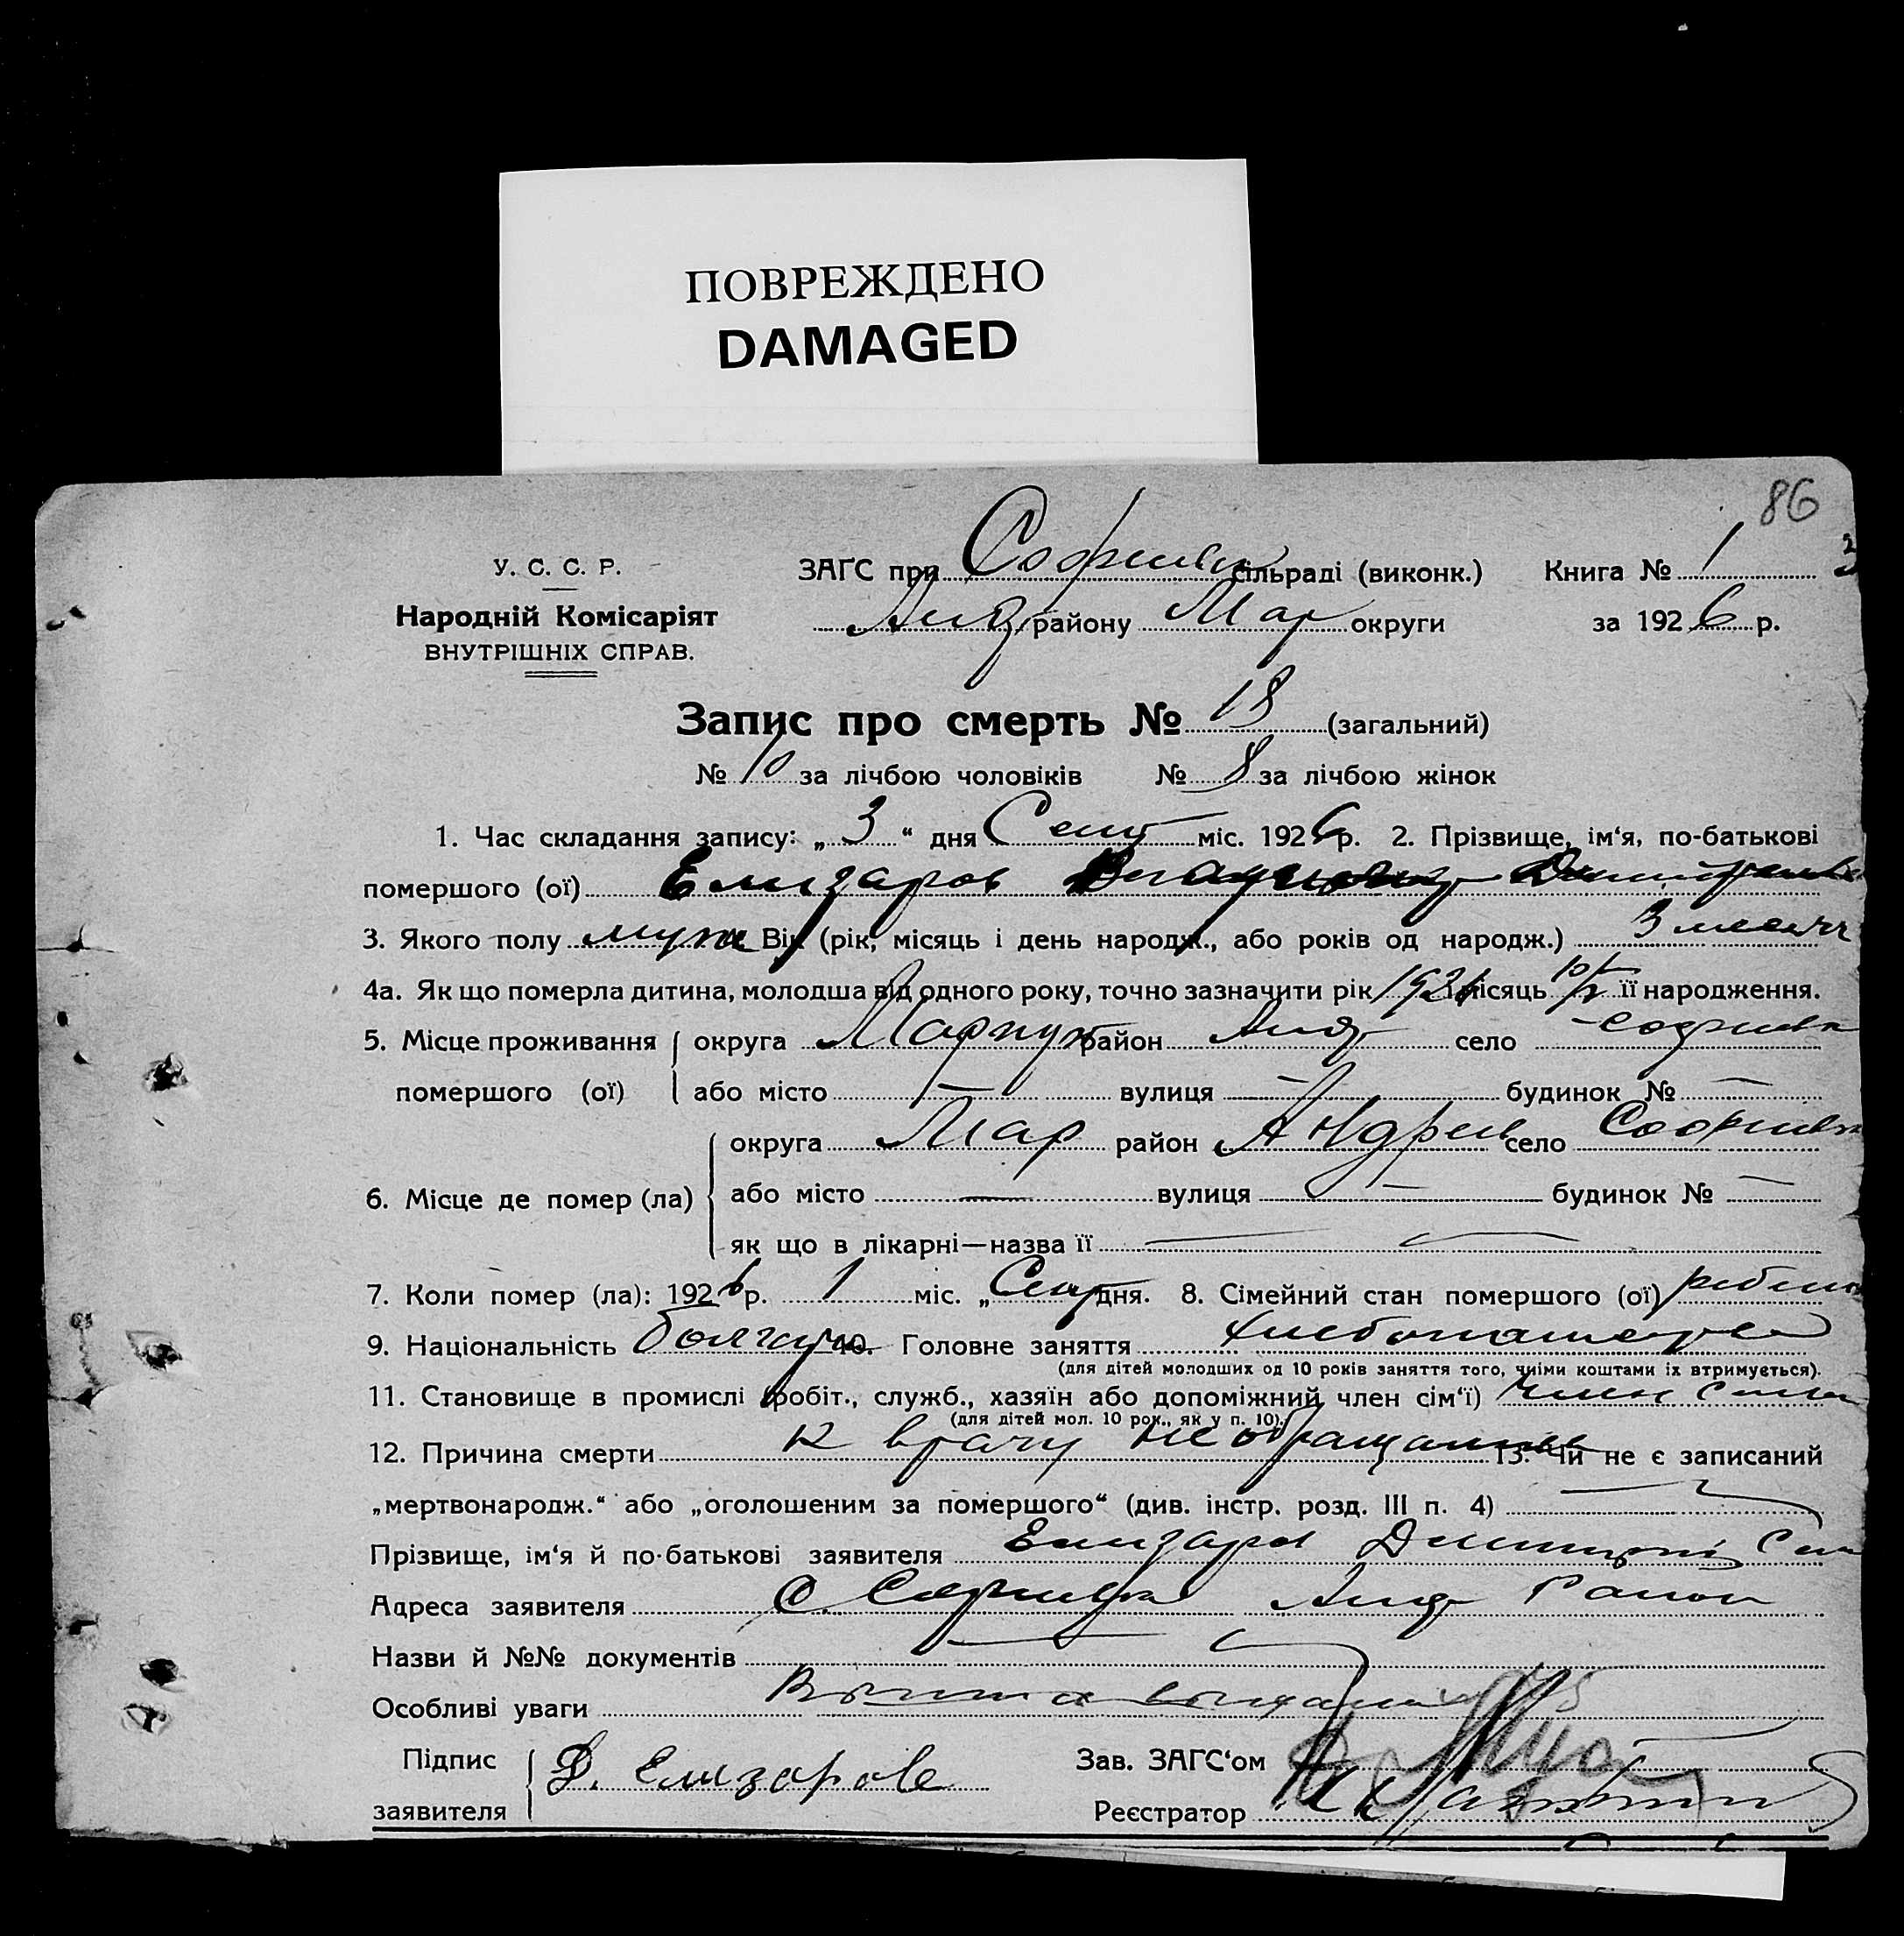 ПОВРЕЖДЕНО
DAMAGED
86
У. С. С. Р. ЗАГС при Софиевк сільраді (виконк.) Книга № 1
Народній Комісаріят Анд району Мар округи за 1926 р.
ВНУТРІШНІХ СПРАВ.
Запис про смерть № 18 (загальний)
№ 10 за лічбою чоловіків № 8 за лічбою жінок
1. Час складання запису: „ 3 “ дня Сент міс. 1926 р. 2. Прізвище, ім‘я, по-батькові
помершого (ої) Елизаров
3. Якого полу муж Вік (рік, місяць і день народж., або років од народж.) 3 месяц
4а. Як що померла дитина, молодша від одного року, точно зазначити рік 1926 місяць її народження.
5. Місце проживання округа Мариуп район Анд село Софиевк
помершого (ої) або місто — вулиця — будинок № —
округа Мар район Андреев село Софиевк
6. Місце де помер (ла) або місто — вулиця — будинок № —
як що в лікарні—назва її —
7. Коли помер (ла): 1926 р. 1 міс. „ Сент дня. 8. Сімейний стан помершого (ої) ребено
9. Національність болгар 10. Головне заняття хлебопашец
(для дітей молодших од 10 років заняття того, чиїми коштами їх втримується).
11. Становище в промислі (робіт., служб., хазяїн або допоміжний член сім‘ї) член семьи
(для дітей мол. 10 рок., як у п. 10).
12. Причина смерти к врачу не обращались 13. Чи не є записаний
„мертвонародж.“ або „оголошеним за помершого“ (див. інстр. розд. III п. 4) —
Прізвище, ім‘я й по-батькові заявителя Елизаров Дмитрий
Адреса заявителя С. Софиевка Анд Район
Назви й №№ документів —
Особливі уваги
Підпис Д. Елизаров Зав. ЗАГС‘ом
заявителя Реєстратор